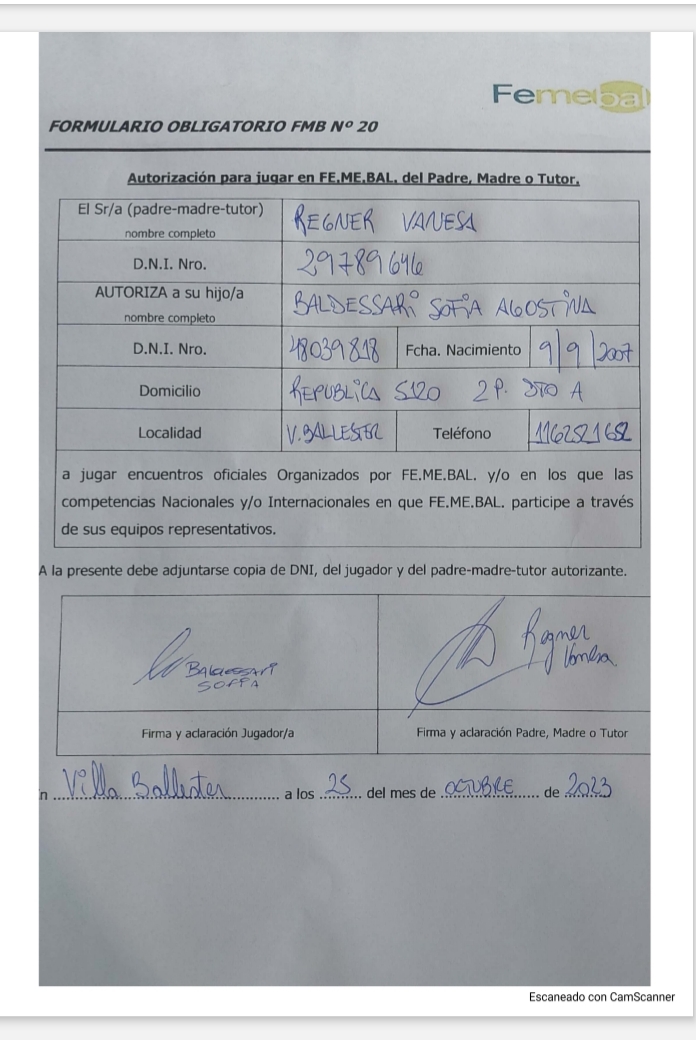 Femebal
FORMULARIO OBLIGATORIO FMB Nº 20
Autorización para jugar en FE.ME.BAL. del Padre, Madre o Tutor.
El Sr/a (padre-madre-tutor) REGNER VANESA
nombre completo
D.N.I. Nro. 29789646
AUTORIZA a su hijo/a BALDESSARI SOFIA AGOSTINA
nombre completo
D.N.I. Nro. 48039818 Fcha. Nacimiento 9/9/2007
Domicilio REPUBLICA 5120 2 P. DTO A
Localidad V. BALLESTER Teléfono 1162521652
a jugar encuentros oficiales Organizados por FE.ME.BAL. y/o en los que las
competencias Nacionales y/o Internacionales en que FE.ME.BAL. participe a través
de sus equipos representativos.
A la presente debe adjuntarse copia de DNI, del jugador y del padre-madre-tutor autorizante.
BALDESSARI
SOFIA
Regner
Vanesa
Firma y aclaración Jugador/a Firma y aclaración Padre, Madre o Tutor
n Villa Ballester a los 25 del mes de OCTUBRE de 2023
Escaneado con CamScanner